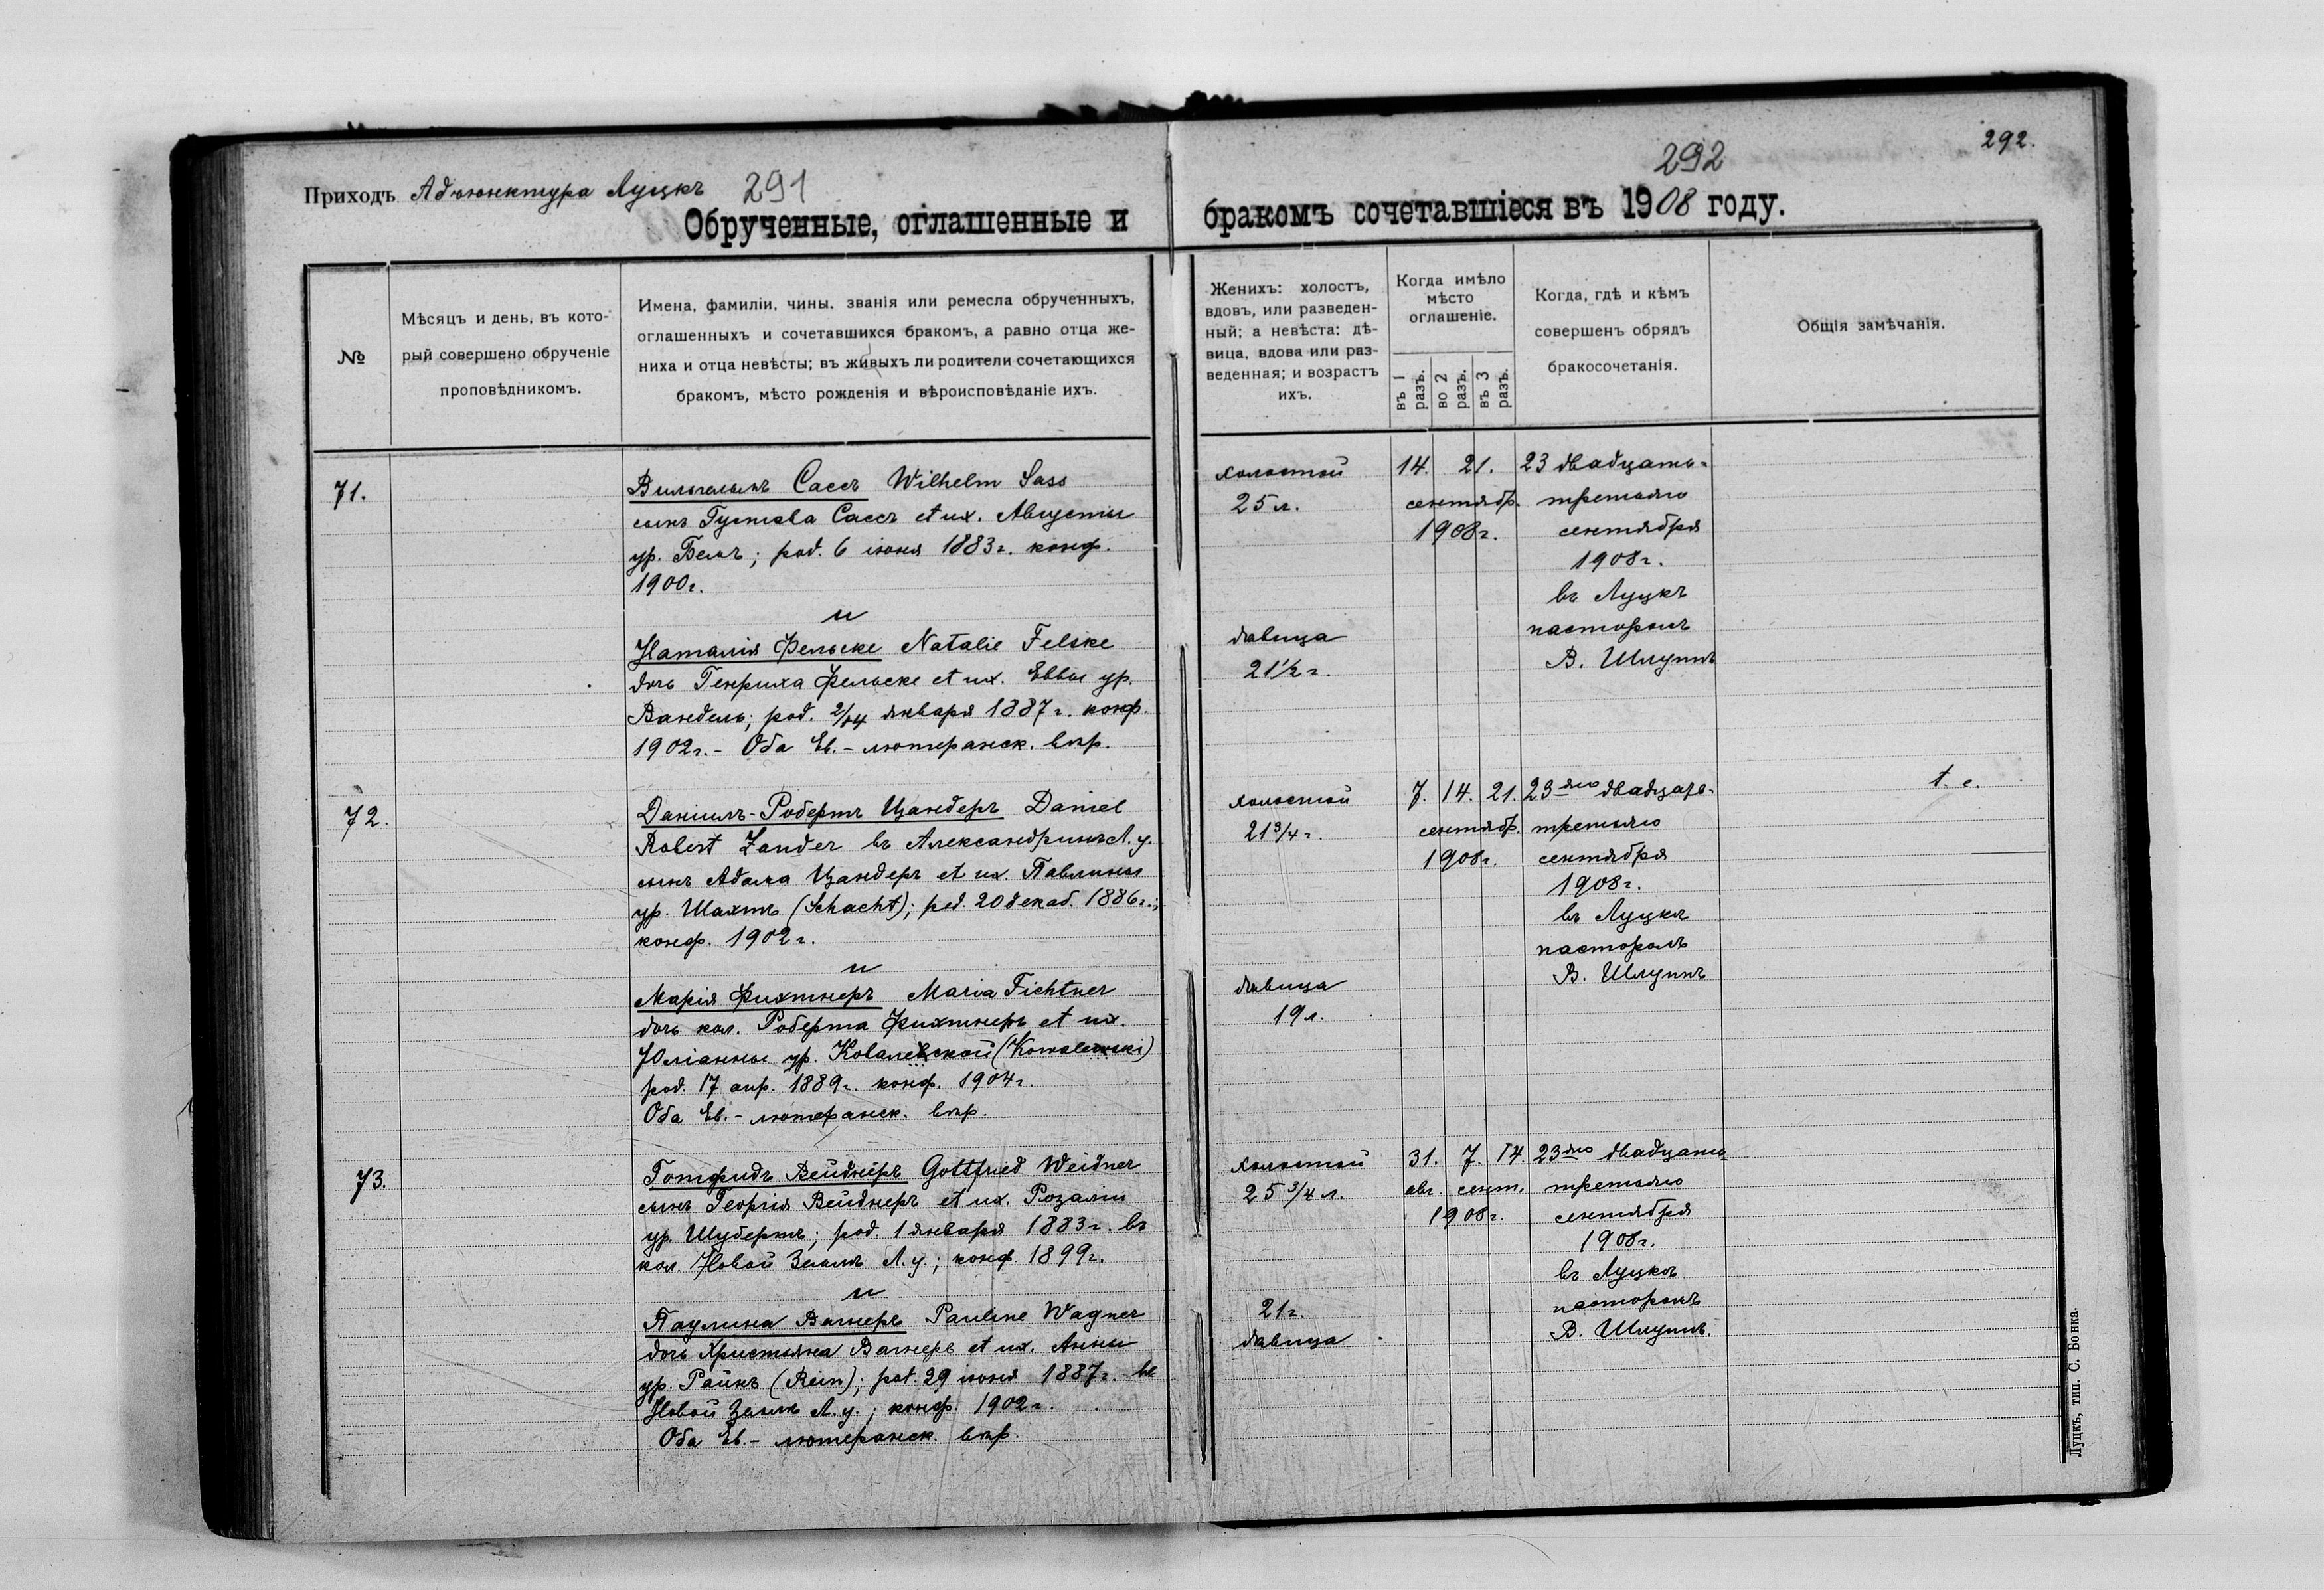 292.
292
Приходъ Адъюнктура Луцкъ 291
Обрученные, оглашенные и бракомъ сочетавшіеся въ 1908 году.
№
Мѣсяцъ и день, въ кото-
рый совершено обрученіе
проповѣдникомъ.
Имена, фамиліи, чины, званія или ремесла обрученныхъ,
оглашенныхъ и сочетавшихся бракомъ, а равно отца же-
ниха и отца невѣсты; въ живыхъ ли родители сочетающихся
бракомъ, мѣсто рожденія и вѣроисповѣданіе ихъ.
Женихъ: холостъ,
вдовъ, или разведен-
ный; а невѣста: дѣ-
вица, вдова или раз-
веденная; и возрастъ
ихъ.
Когда имѣло
мѣсто
оглашеніе.
въ 1 разъ.
во 2 разъ.
въ 3 разъ.
Когда, гдѣ и кѣмъ
совершенъ обрядъ
бракосочетанія.
Общія замѣчанія.
71.
Вильгельмъ Сассъ Wilhelm Sass
сынъ Густава Сассъ et ux. Августы
ур. Бемъ; род. 6 іюня 1883 г. конф.
1900 г.
и
Наталія Фельске Natalie Felske
дочь Генриха Фельске et ux. Еввы ур.
Вандель; род. 2/14 января 1887 г. конф.
1902 г. - Оба Ев.-лютеранск. вѣр.
холостой
25 л.
дѣвица
21 1/2 г.
14. 21.
сентябр.
1908 г.
23 двадцать-
третьяго
сентября
1908 г.
въ Луцкѣ
пасторомъ
В. Шлуппъ
72.
Даніилъ-Робертъ Цандеръ Daniel
Robert Zander въ Александринѣ Л. у.
сынъ Адама Цандеръ et ux. Павлины
ур. Шахтъ (Schacht); род. 20 декаб. 1886 г.;
конф. 1902 г.
и
Марія Фихтнеръ Maria Fichtner
дочь кол. Роберта Фихтнеръ et ux.
Юліанны ур. Ковалевской (Kowalewski)
род. 17 апр. 1889 г. конф. 1904 г.
Оба Ев.-лютеранск. вѣр.
холостой
21 3/4 г.
дѣвица
19 л.
7. 14. 21.
сентябр.
1908 г.
23 яго двадцать-
третьяго
сентября
1908 г.
въ Луцкѣ
пасторомъ
В. Шлуппъ
t. c.
73.
Готфридъ Вейднеръ Gottfried Weidner
сынъ Георгія Вейднеръ et ux. Розаліи
ур. Шубертъ; род. 1 января 1883 г. въ
кол. Новой Землѣ Л. у.; конф. 1899 г.
и
Паулина Вагнеръ Pauline Wagner
дочь Христьяна Вагнеръ et ux. Анны
ур. Райнъ (Rein); рот. 29 іюня 1887 г. въ
Новой Землѣ Л. у.; конф. 1902 г.
Оба Ев.-лютеранск. вѣр.
холостой
25 3/4 л.
21 г.
дѣвица
31. 7. 14.
авг. сент.
1908 г.
23 яго двадцать
третьяго
сентября
1908 г.
въ Луцкѣ
пасторомъ
В. Шлуппъ.
Луцкъ, тип. С. Бонка.